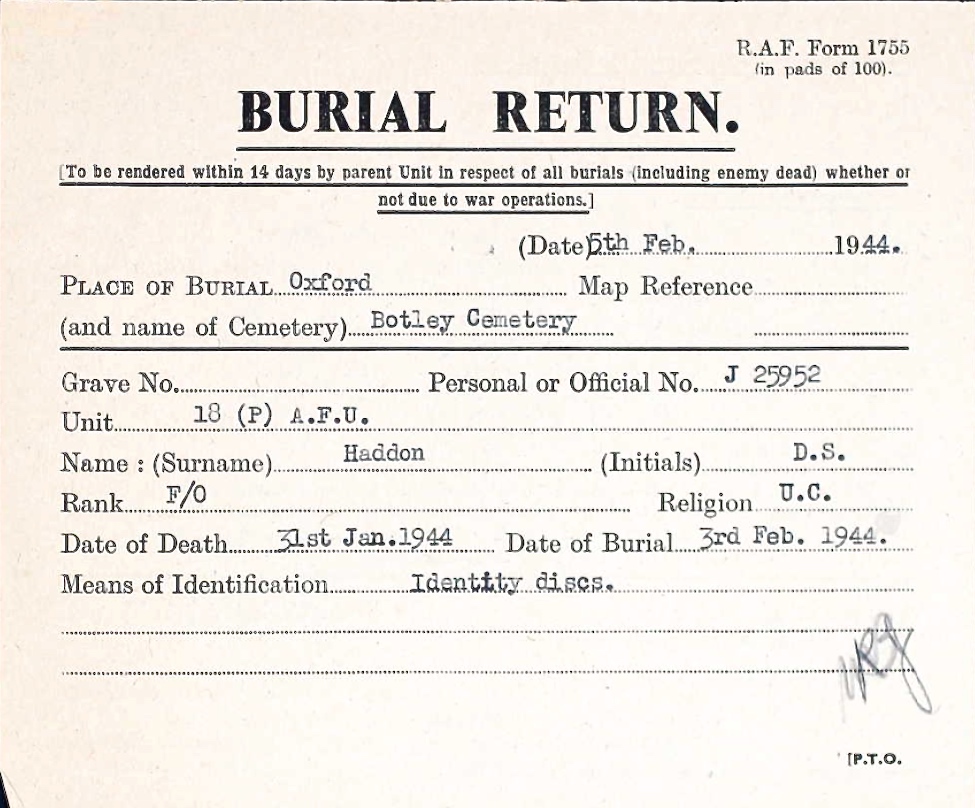 R.A.F. Form 1755
(in pads of 100).
BURIAL RETURN.
[To be rendered within 14 days by parent Unit in respect of all burials (including enemy dead) whether or
not due to war operations.]
(Date) 5th Feb. 1944.
PLACE OF BURIAL Oxford Map Reference
(and name of Cemetery) Botley Cemetery
Grave No. Personal or Official No. J 25952
Unit 18 (P) A.F.U.
Name : (Surname) Haddon (Initials) D.S.
Rank F/O Religion U.C.
Date of Death 31st Jan.1944 Date of Burial 3rd Feb. 1944.
Means of Identification Identity discs.
[P.T.O.